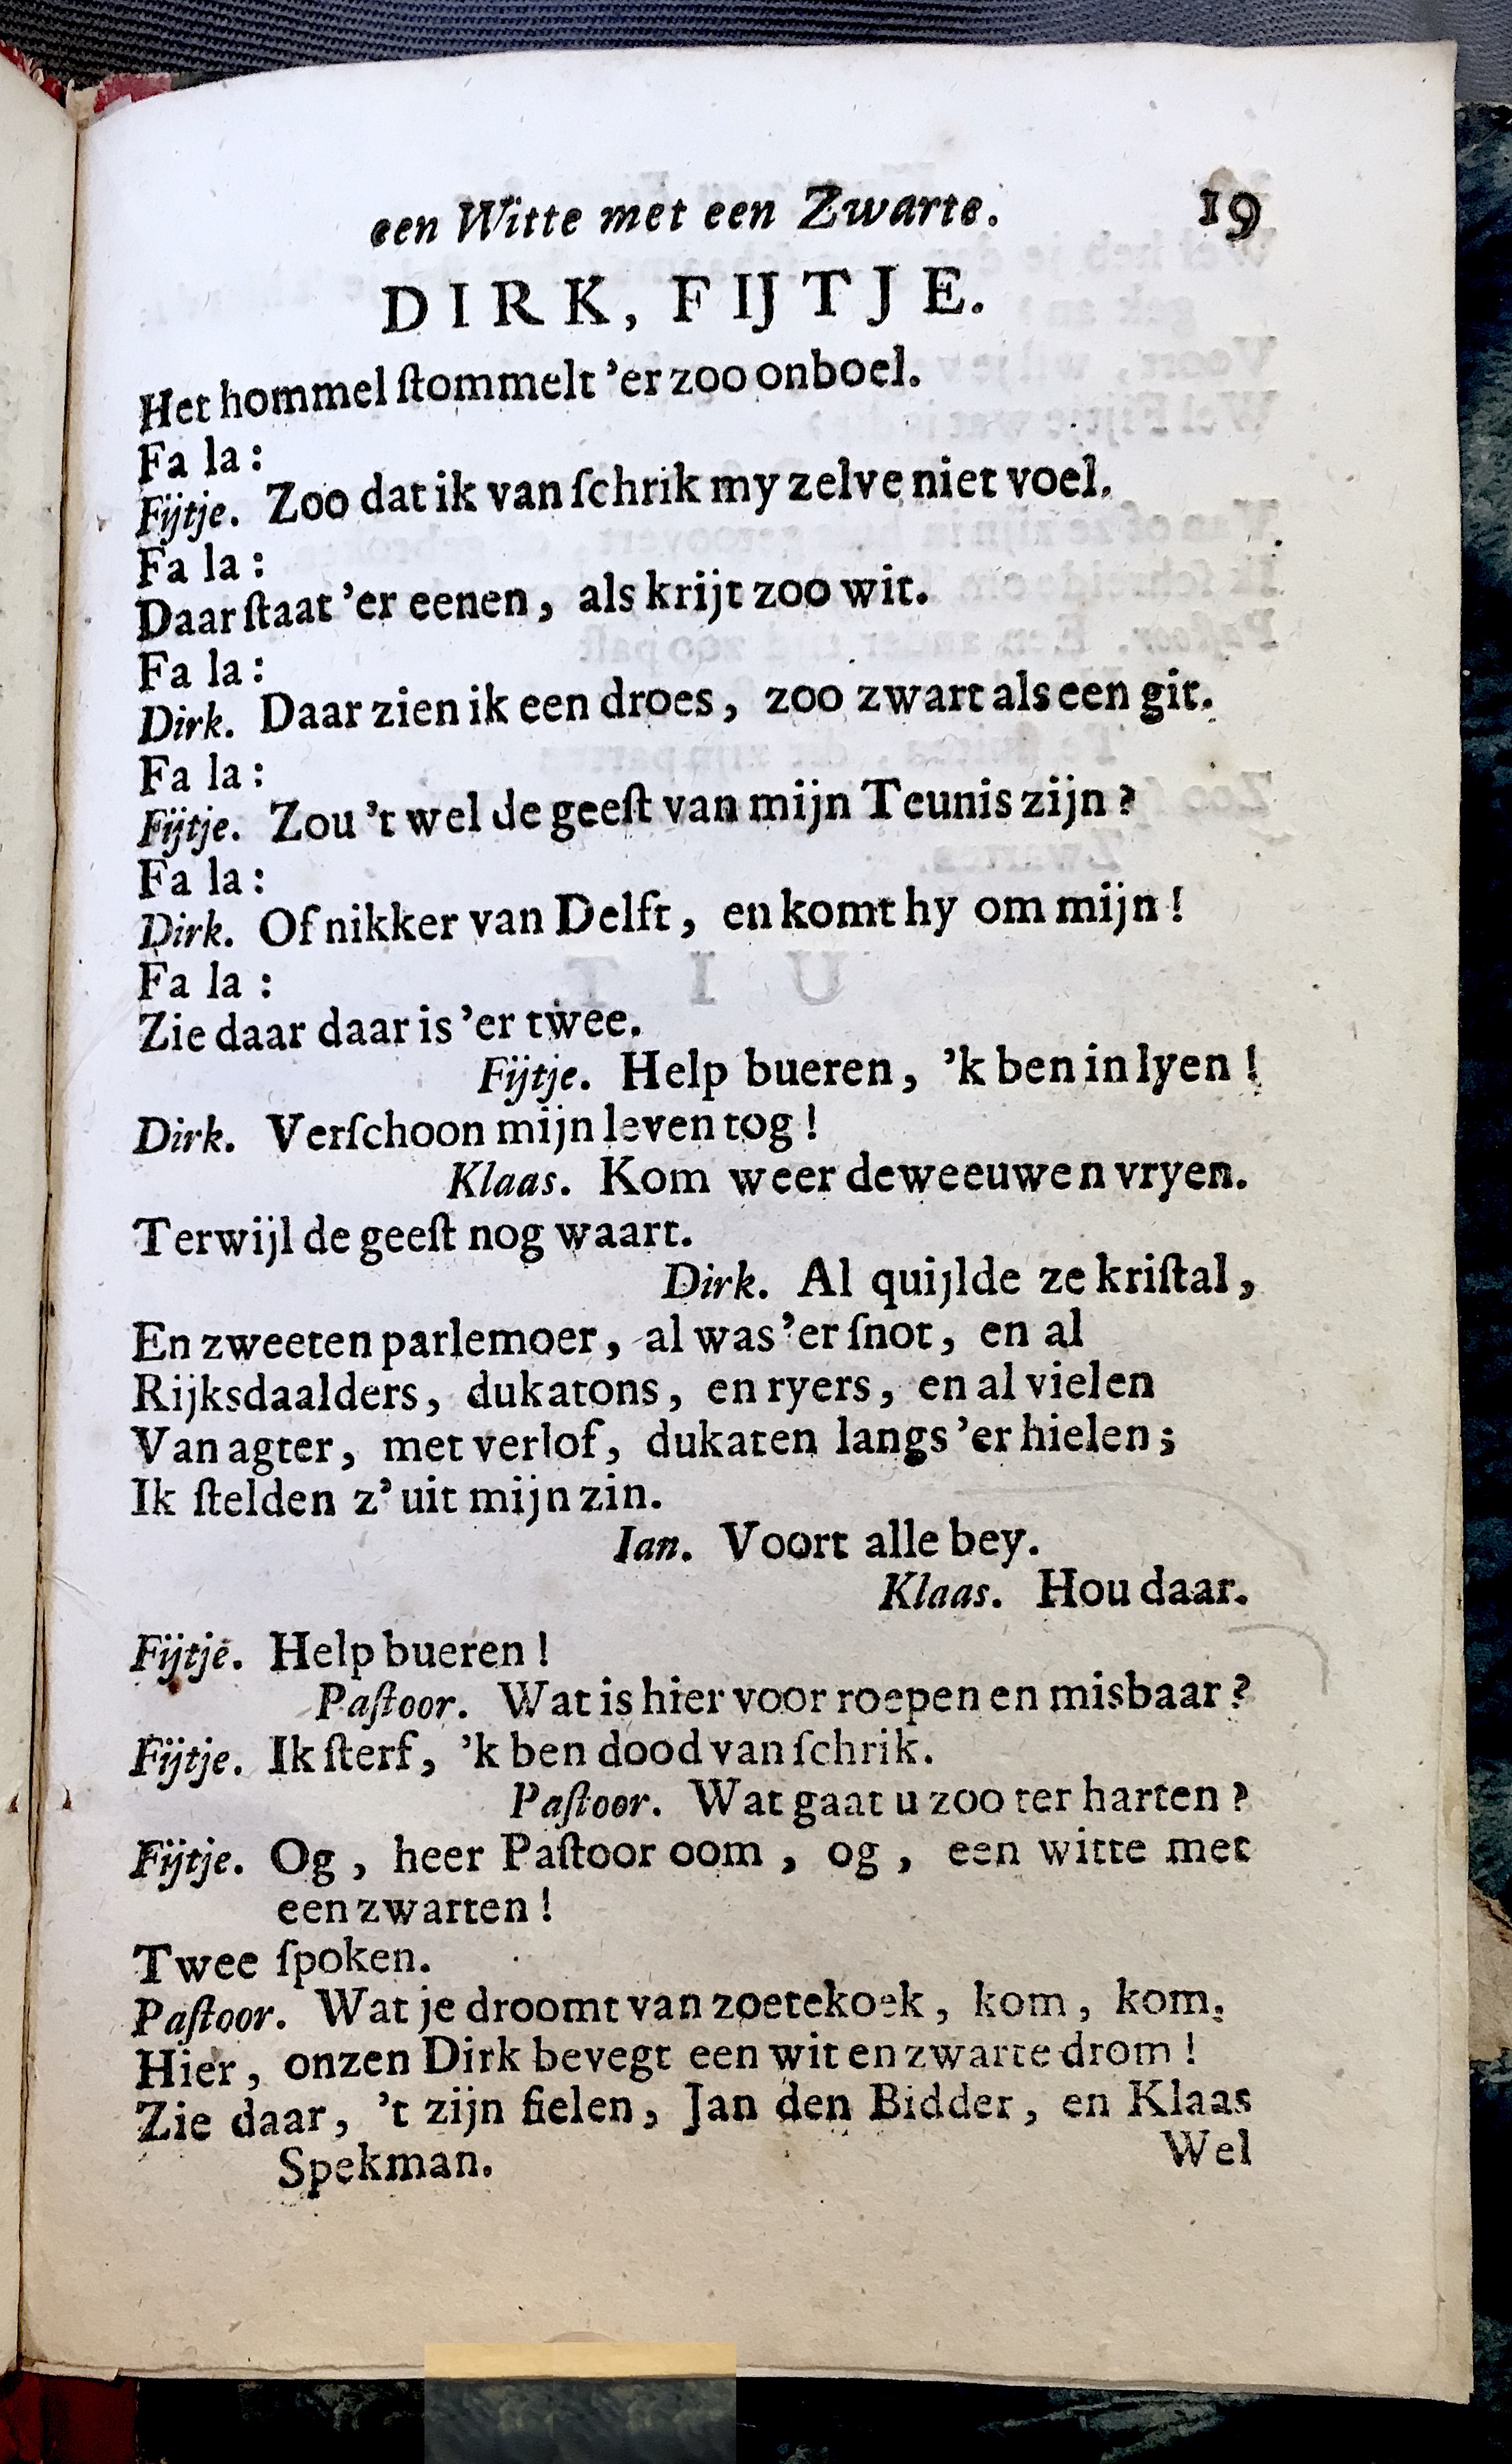 een Witte met een Zwarte. 19
DIRK, FIJTJE.
Het hommel ſtommelt ’er zoo onboel.
Fa la:
Fijtje. Zoo dat ik van ſchrik my zelve niet voel.
Fa la:
Daar ſtaat ’er eenen, als krijt zoo wit.
Fa la:
Dirk. Daar zien ik een droes, zoo zwart als een git.
Fa la:
Fijtje. Zou ’t wel de geeſt van mijn Teunis zijn?
Fa la:
Dirk. Of nikker van Delft, en komt hy om mijn!
Fa la:
Zie daar daar is ’er twee.
Fijtje. Help bueren, ’k ben in lyen!
Dirk. Verſchoon mijn leven tog!
Klaas. Kom weer de weeuwen vryen.
Terwijl de geeſt nog waart.
Dirk. Al quijlde ze kriſtal,
En zweeten parlemoer, al was ’er ſnot, en al
Rijksdaalders, dukatons, en ryers, en al vielen
Van agter, met verlof, dukaten langs ’er hielen;
Ik ſtelden z’ uit mijn zin.
Ian. Voort alle bey.
Klaas. Hou daar.
Fijtje. Help bueren!
Paſtoor. Wat is hier voor roepen en misbaar?
Fijtje. Ik ſterf, ’k ben dood van ſchrik.
Paſtoor. Wat gaat u zoo ter harten?
Fijtje. Og, heer Paſtoor oom, og, een witte met
een zwarten!
Twee ſpoken.
Paſtoor. Wat je droomt van zoetekoek, kom, kom.
Hier, onzen Dirk bevegt een wit en zwarte drom!
Zie daar, ’t zijn fielen, Jan den Bidder, en Klaas
Spekman.
Wel